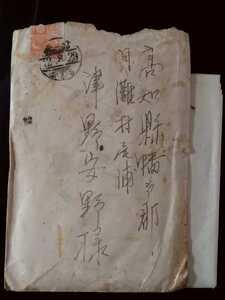 高知縣幡多郡
月灘村小浦
津野安野様